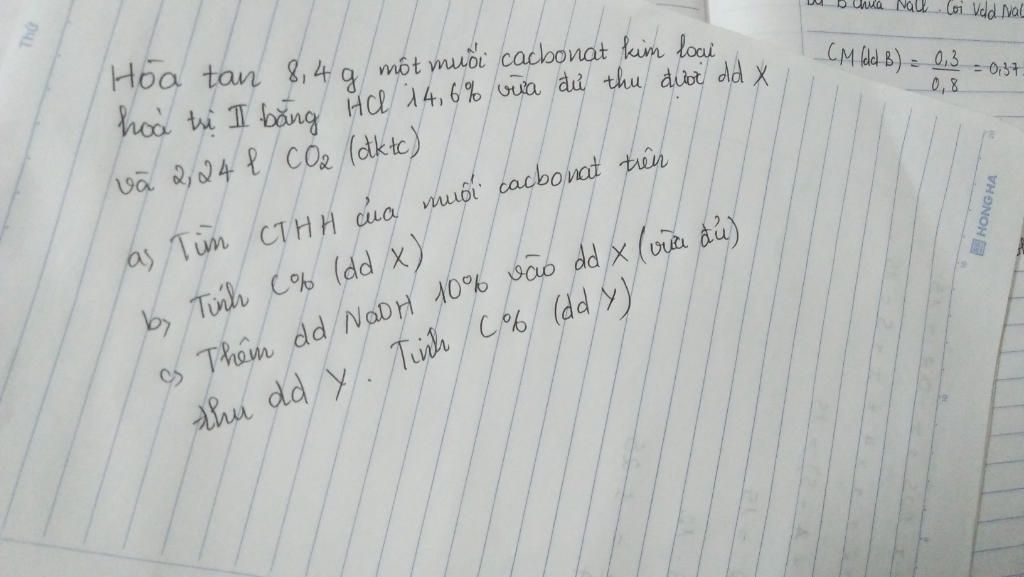 Thứ
Hòa tan 8,4 g một muối cacbonat kim loại
hoá trị II bằng HCl 14,6% vừa đủ thu được dd X
và 2,24 l CO2 (đktc)
a, Tìm CTHH của muối cacbonat trên
b, Tính C% (dd X)
c, Thêm dd NaOH 10% vào dd X (vừa đủ)
thu dd Y. Tính C% (dd Y)
B chứa NaCl. Coi Vdd Nal
CM(ddB) = 0,3 / 0,8 = 0,37
HONG HA